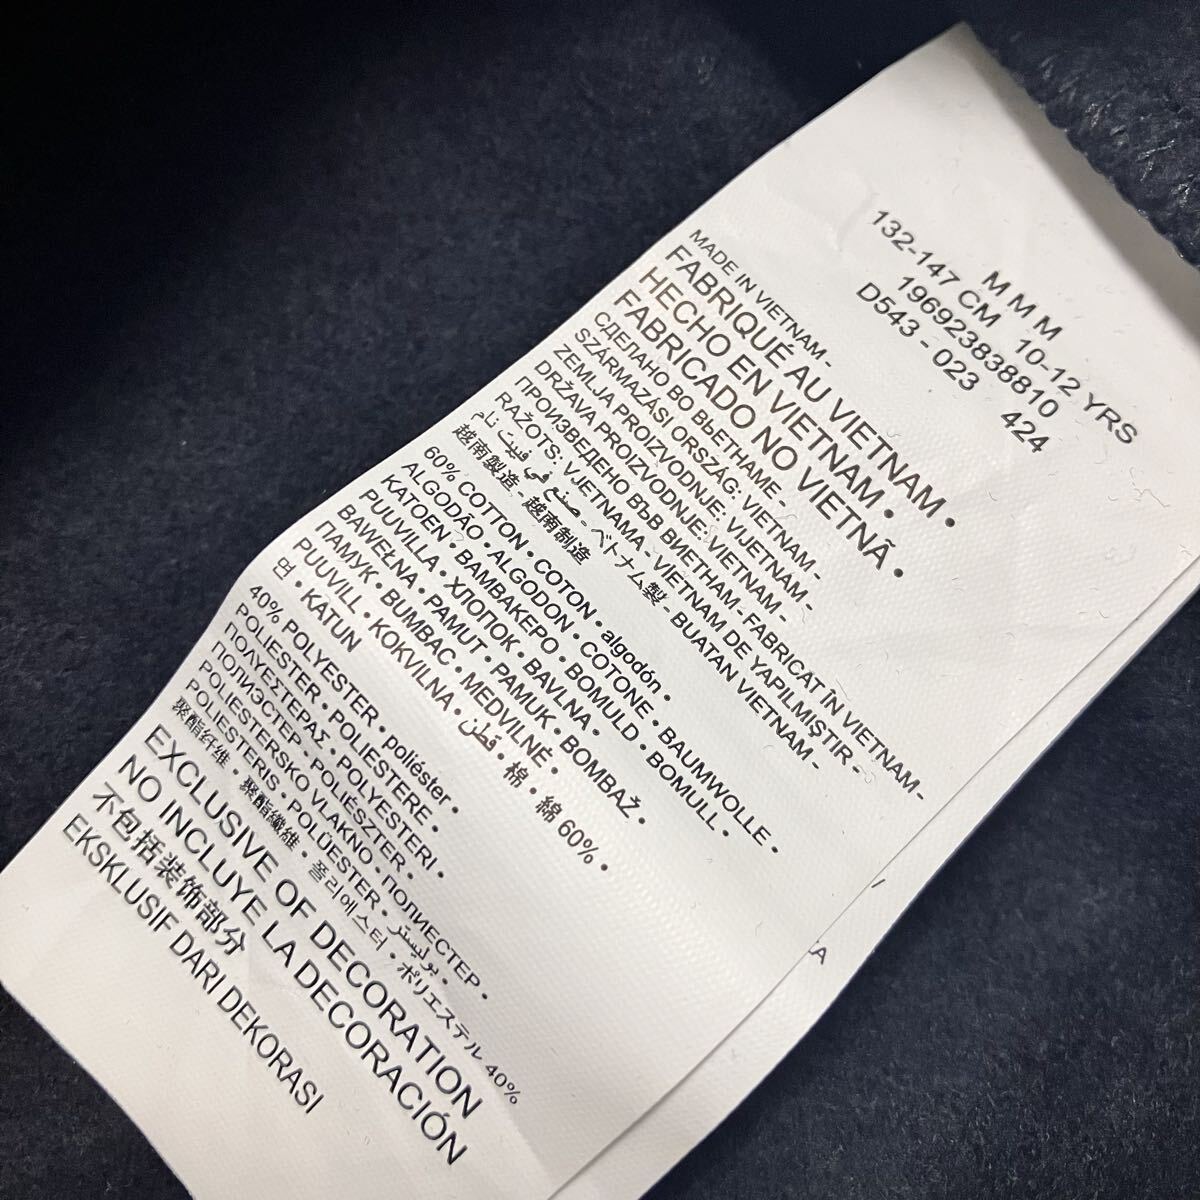 M M M
132-147 CM 10-12 YRS
196923838810
D543 - 023 424
MADE IN VIETNAM -
FABRIQUÉ AU VIETNAM •
HECHO EN VIETNAM •
FABRICADO NO VIETNÃ •
СДЕЛАНО ВО ВЬЕТНАМЕ -
SZÁRMAZÁSI ORSZÁG: VIETNAM -
ZEMLJA PROIZVODNJE: VIJETNAM -
DRŽAVA PROIZVODNJE: VIETNAM -
ПРОИЗВЕДЕНО ВЪВ ВИЕТНАМ - FABRICAT ÎN VIETNAM -
RAŽOTS: VJETNAMA - VIETNAM DE YAPILMIŞTIR -
صنع في فييت نام - ベトナム製 - BUATAN VIETNAM -
越南製造 - 越南制造
60% COTTON • COTON • algodón •
ALGODÃO • ALGODON • COTONE • BAUMWOLLE •
KATOEN • ΒΑΜΒΑΚΕΡΟ • BOMULD • BOMULL •
PUUVILLA • ХЛОПОК • BAVLNA •
BAWEŁNA • PAMUT • PAMUK • BOMBAŽ •
ПАМУК • BUMBAC • MEDVILNĖ •
PUUVILL • KOKVILNA • قطن • 棉 • 綿 60% •
면 • KATUN
40% POLYESTER • poliéster •
POLIESTER • POLIESTERE •
ΠΟΛΥΕΣΤΕΡΑΣ • POLYESTERI •
ПОЛИЭСТЕР • POLIÉSZTER •
POLIESTERSKO VLAKNO • ПОЛИЕСТЕР •
POLIESTERIS • POLÜESTER • بوليستر •
聚酯纤维 • 聚酯纖維 • 폴리에스터 • ポリエステル 40%
EXCLUSIVE OF DECORATION
NO INCLUYE LA DECORACIÓN
不包括装饰部分
EKSKLUSIF DARI DEKORASI